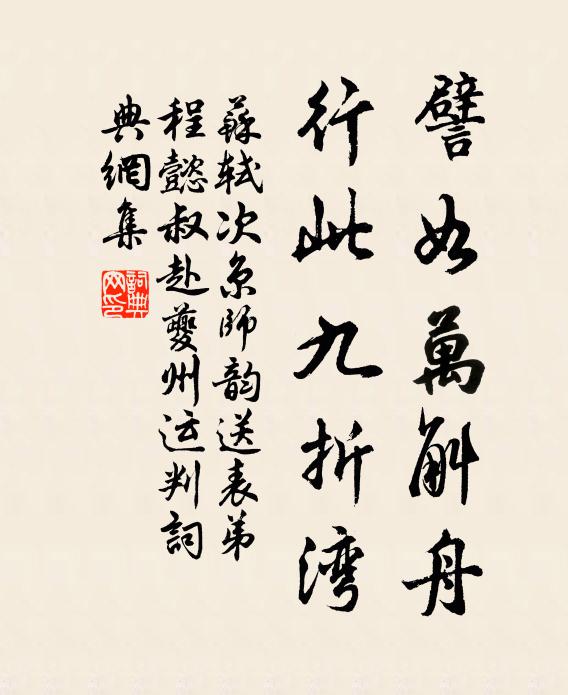 譬如萬斛舟
行此九折湾
蘇軾次京師韵送表弟
程懿叔赴夔州运判詞
典網集
詞典网印